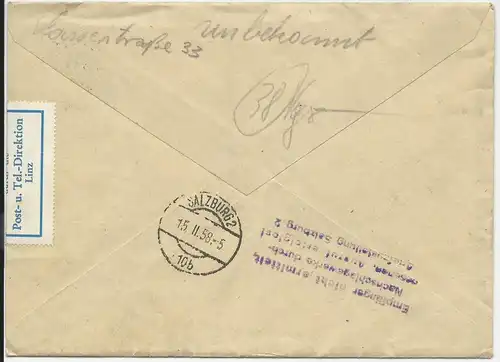 unbekannt
33
Post- u. Tel.-Direktion
Linz
SALZBURG 2
15.II.58.-5
10b
Empfänger nicht ermittelt,
Nachschlagewerke durch-
gesehen, Ausruf erfolglos!
Briefzustellung Salzburg 2